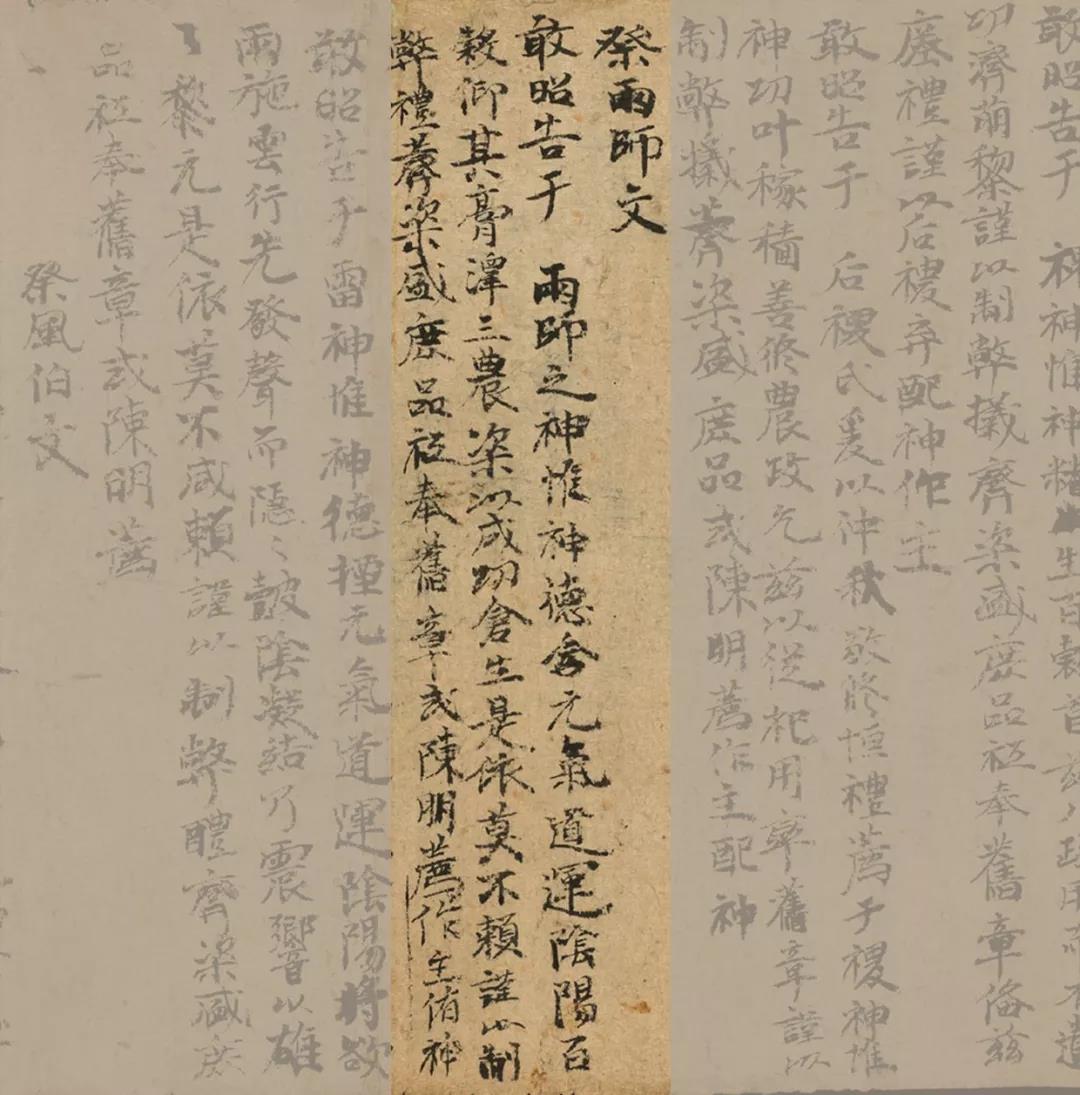 敢昭告于 神神惟神精生百穀首茲八政用而不遺
功濟萠黎謹以制弊犧齊粢盛庶品祗奉舊章俻茲
瘞禮謹以后稷弃配神作主
敢昭告于 后稷氏爰以仲秋敬脩恒禮薦于稷神惟
神功叶稼穡善脩農政允茲以從祀用率舊章謹以
制弊犧薺粢盛庶品式陳明薦作主配神
祭雨師文
敢昭告于 雨師之神惟神德含元氣道運陰陽百
穀仰其膏澤三農粢以成功倉生是依莫不賴謹以制
弊禮薺粢盛庶品祗奉舊章式陳明薦作主侑神
敢昭告于雷神惟神德煙元氣道運陰陽將欲
雨施雲行先發聲而隱〻皷陰凝結乃震嚮以雄
黎元是依莫不咸賴謹以制弊醴齊粢盛庶
品祗奉舊章式陳明薦
祭風伯文